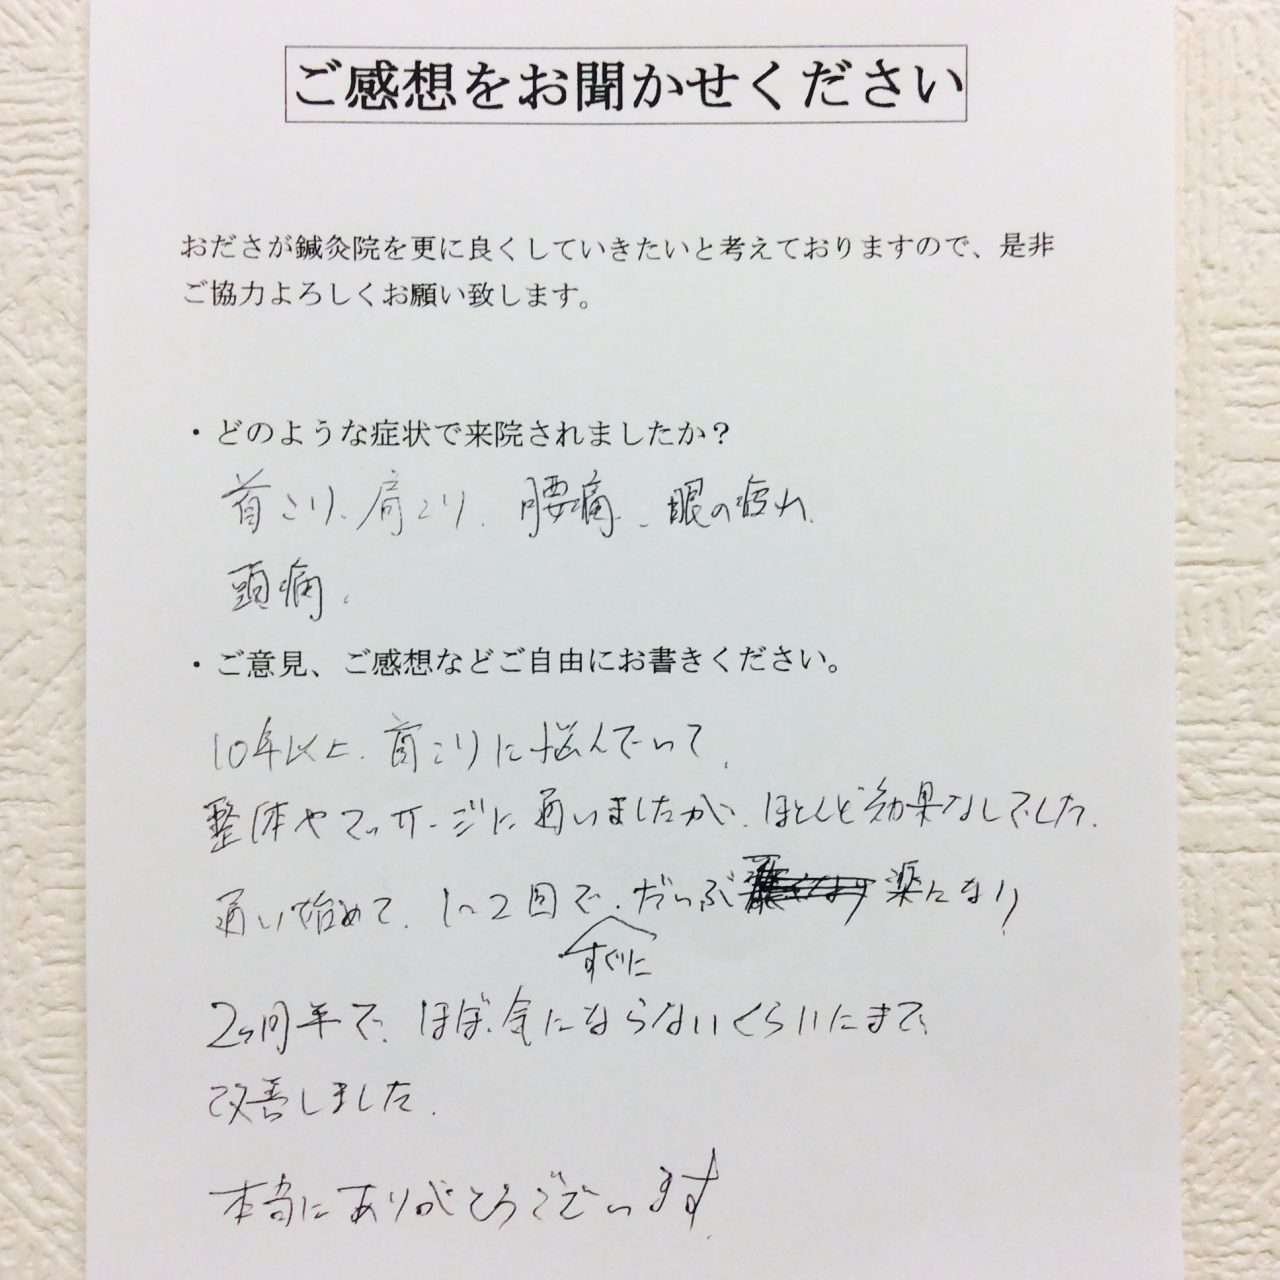 ご感想をお聞かせください
おださが鍼灸院を更に良くしていきたいと考えておりますので、是非
ご協力よろしくお願い致します。
・どのような症状で来院されましたか？
首こり、肩こり、腰痛、眼の疲れ、
頭痛、
・ご意見、ご感想などご自由にお書きください。
10年以上、首こりに悩んでいて、
整体やマッサージに通いましたが、ほとんど効果なしでした。
通い始めて、1〜2回で、だいぶ 楽になり
すぐに
2ヶ月半で、ほぼ気にならないくらいにまで
改善しました。
本当にありがとうございます